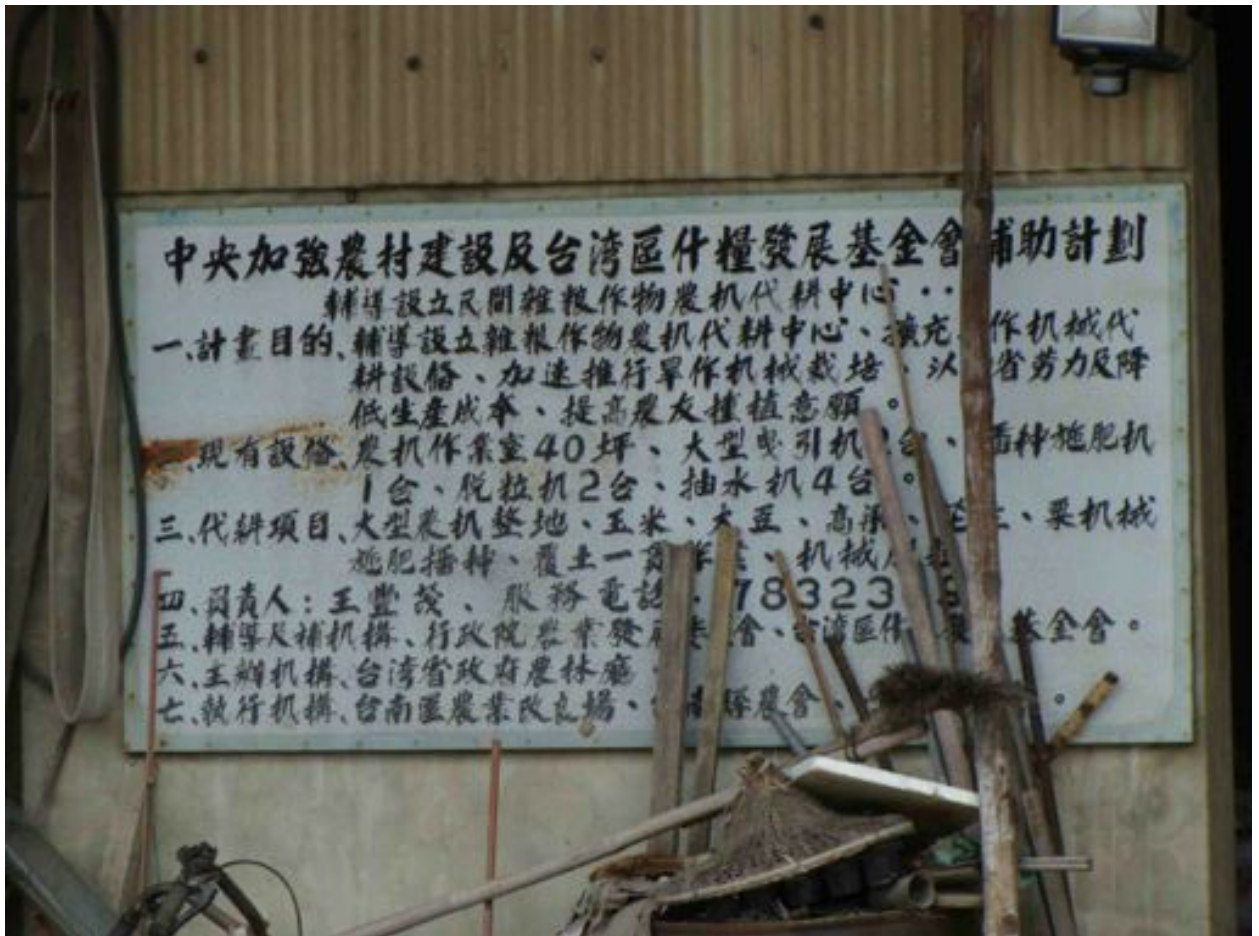 中央加強農村建設及台湾區什糧發展基金會補助計劃
輔導設立民間雜粮作物農机代耕中心··
一、計畫目的、輔導設立雜粮作物農机代耕中心、擴充作机械代
耕設俻、加速推行旱作机械栽培、以省劳力及降
低生產成本、提高農友種植意願。
二、現有設俻、農机作業室40坪、大型曳引机2台、播种施肥机
1台、脱粒机2台、抽水机4台。
三、代耕項目、大型農机整地、玉米、大豆、高粱、花生、栗机械
施肥播种、覆土一貫作業、机械
四、負責人：王豐茂、服務電話、78323
五、輔導及補机構、行政院農業發展委員會、台湾區什基金會。
六、主辦机構、台湾省政府農林廳。
七、執行机構、台南區農業改良場、縣農會、。